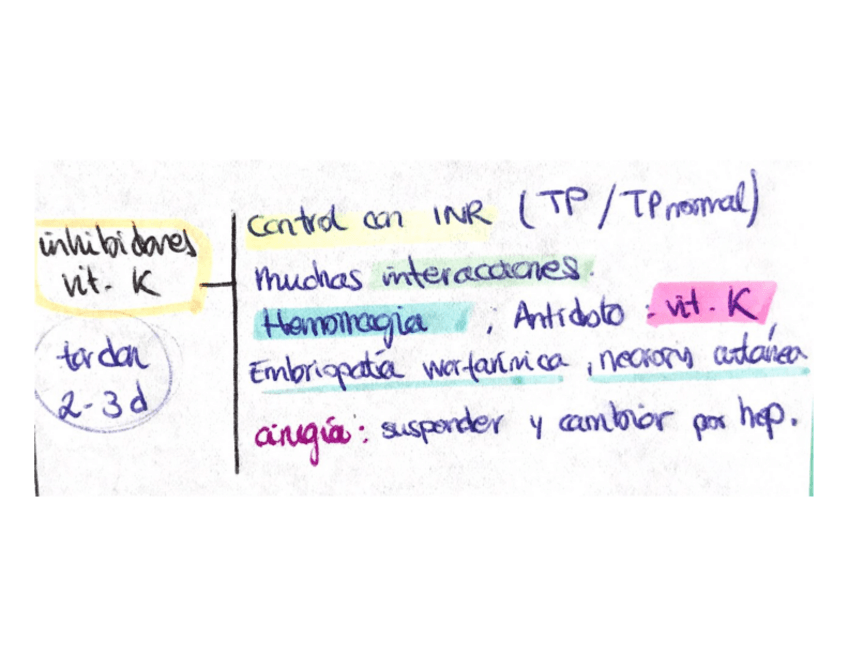 inhibidores
vit. K
tardan
2-3 d
Control con INR (TP / TP normal)
muchas interacciones.
Hemorragia ; Antídoto : vit. K
Embriopatía warfarínica , necrosis cutánea
cirugía: suspender y cambiar por hep.